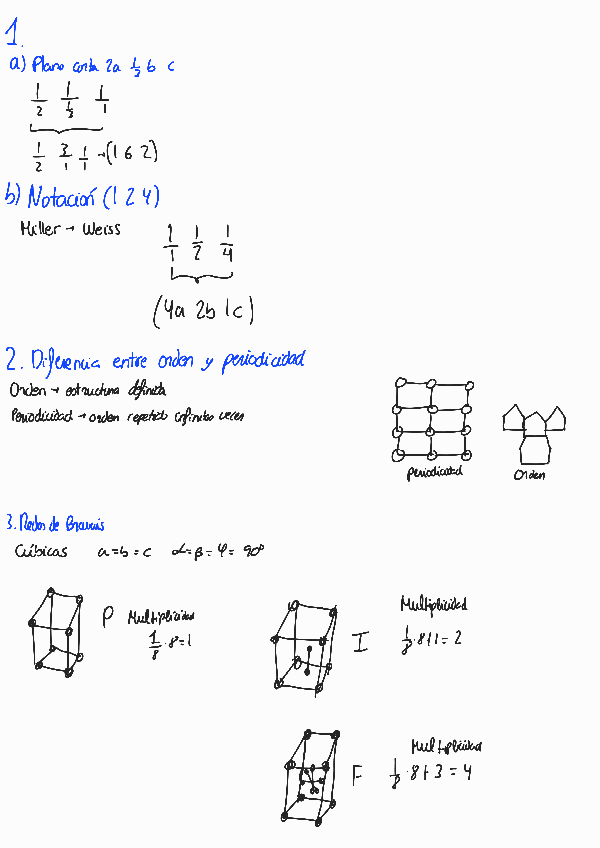 1.
a) Plano corta 2a 1/3 b c
1/2 1/(1/3) 1/1
1/2 3/1 1/1 → (1 6 2)
b) Notación (1 2 4)
Miller → Weiss
1/1 1/2 1/4
(4a 2b 1c)
2. Diferencia entre orden y periodicidad
Orden → estructura definida
Periodicidad → orden repetido infinitas veces
Periodicidad
Orden
3. Redes de Bravais
Cúbicas a=b=c α=β=φ=90º
P Multiplicidad
1/8·8=1
Multiplicidad
I 1/8·8+1=2
Multiplicidad
F 1/8·8+3=4